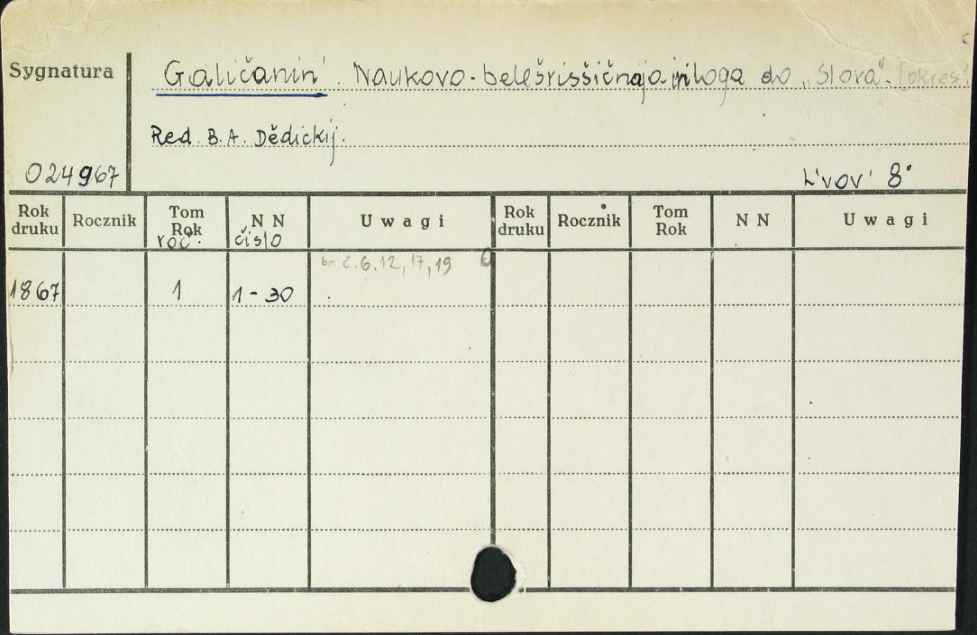 Sygnatura
Galičaninʹ. Naukovo-belešrissičnaja priloga do „Slova“. [okres]
Red. B. A. Dědickij.
024967
Lʹvovʹ 8°
Rok druku Rocznik Tom Rok N N U w a g i Rok druku Rocznik Tom Rok N N U w a g i
roč. čislo
br. č. 6. 12, 17, 19
1867 1 1-30